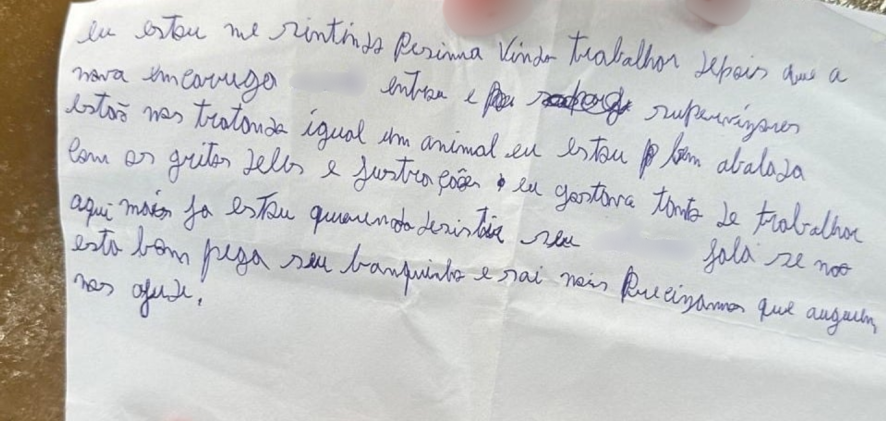 eu estou me sintindo Pesinma Vindo trabalhar depois que a
nova emcarruga entrou e supervizores
estaõ nos tratondo igual um animal eu estou bem abalada
Com os gritos delles e frustrações eu gostava tonto de trabalhar
aqui mais ja estou querendo desistir seu fala se noo
esta bom pega seu banquinho e sai nois Precizamos que auguem
nos ajude.